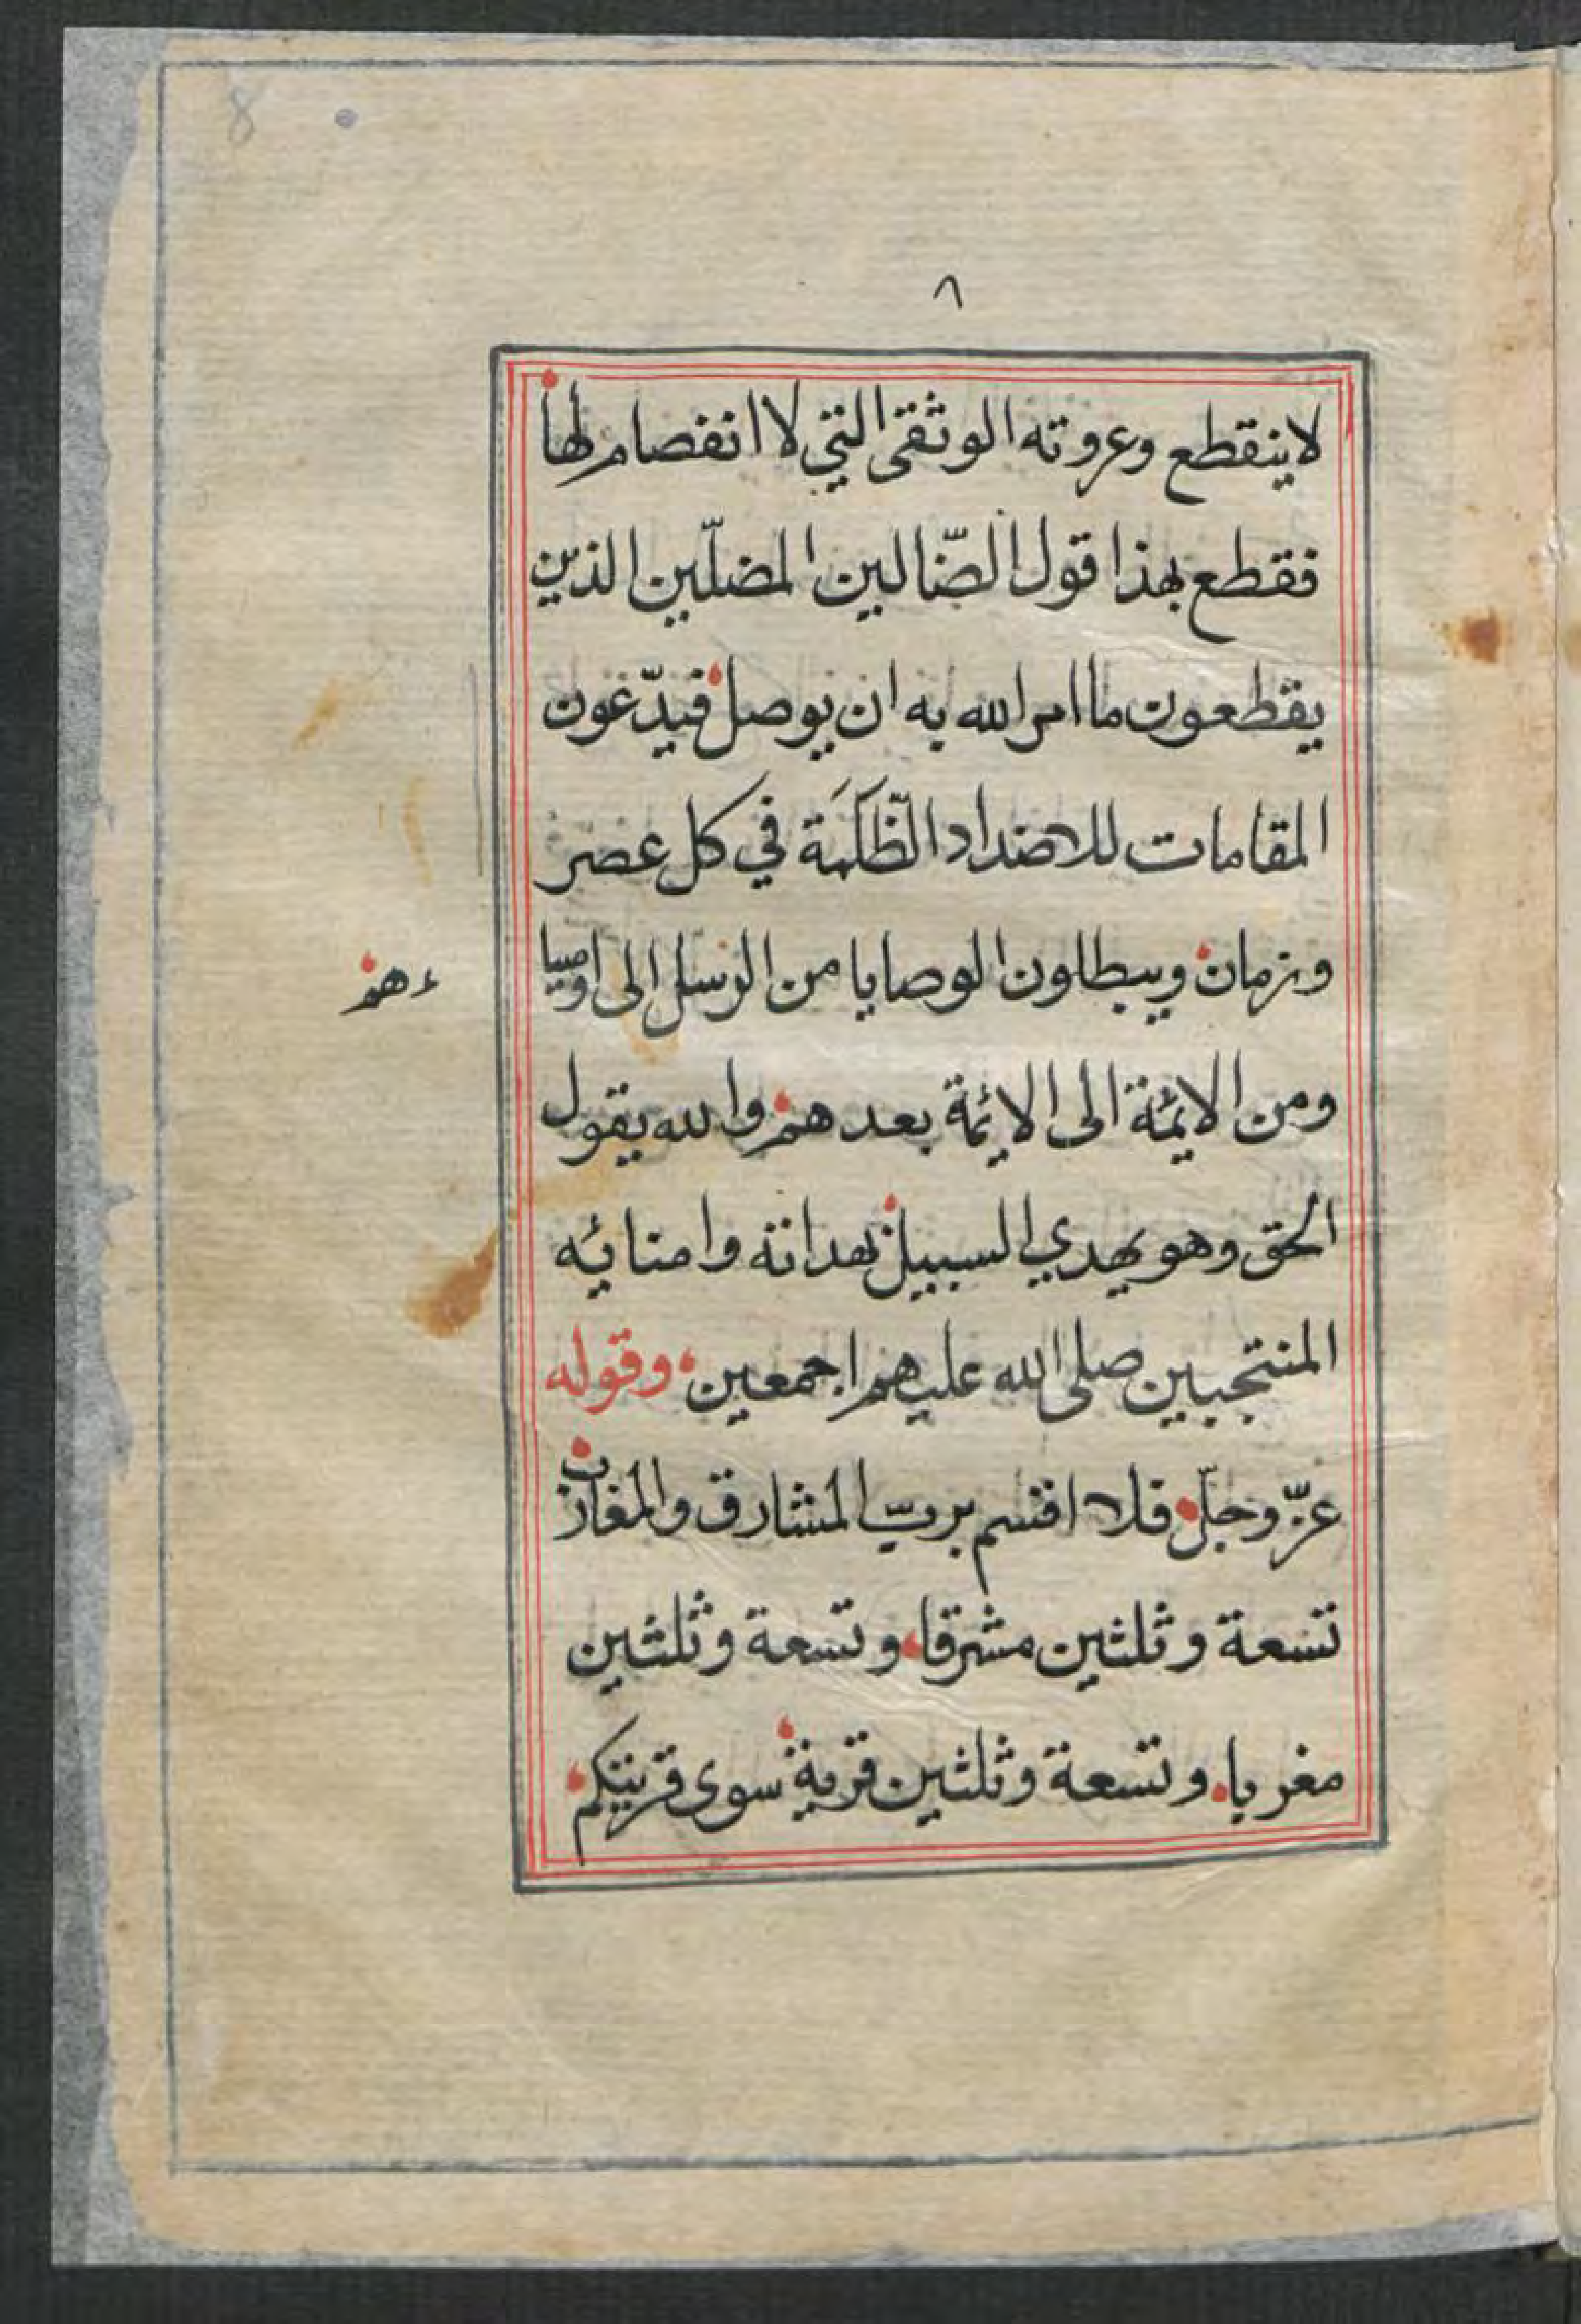 8
٨
لا ينقطع وعروته الوثقى التي لا انفصام لها
فقطع بهذا قول الضّالين المضلّين الذين
يقطعون ما امر الله به ان يوصل فيدّعون
المقامات للاضداد الظّلَمَة في كل عصر
وزمان ويبطلون الوصايا من الرسل الى اوصيا
ءهم
ومن الايمّة الى الائمة بعدهم والله يقول
الحق وهو يهدي السبيل بهداته وامنائه
المنتجبين صلى الله عليهم اجمعين، وقوله
عزّ وجلّ فلا اقسم بربّ المشارق والمغارب
تسعة وثلثين مشرقا، وتسعة وثلثين
مغربا، وتسعة وثلثين قرية سوى قريتكم،